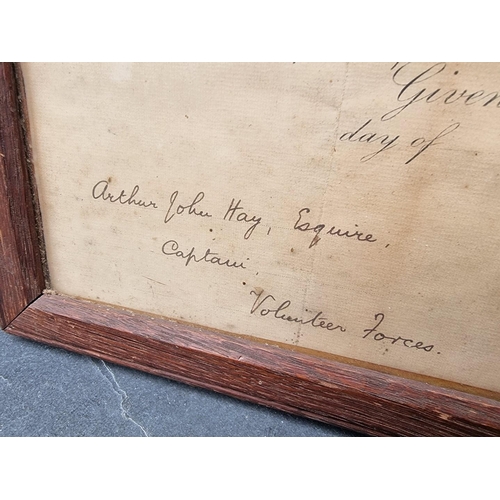 Given
day of
Arthur John Hay, Esquire,
Captain,
Volunteer Forces.